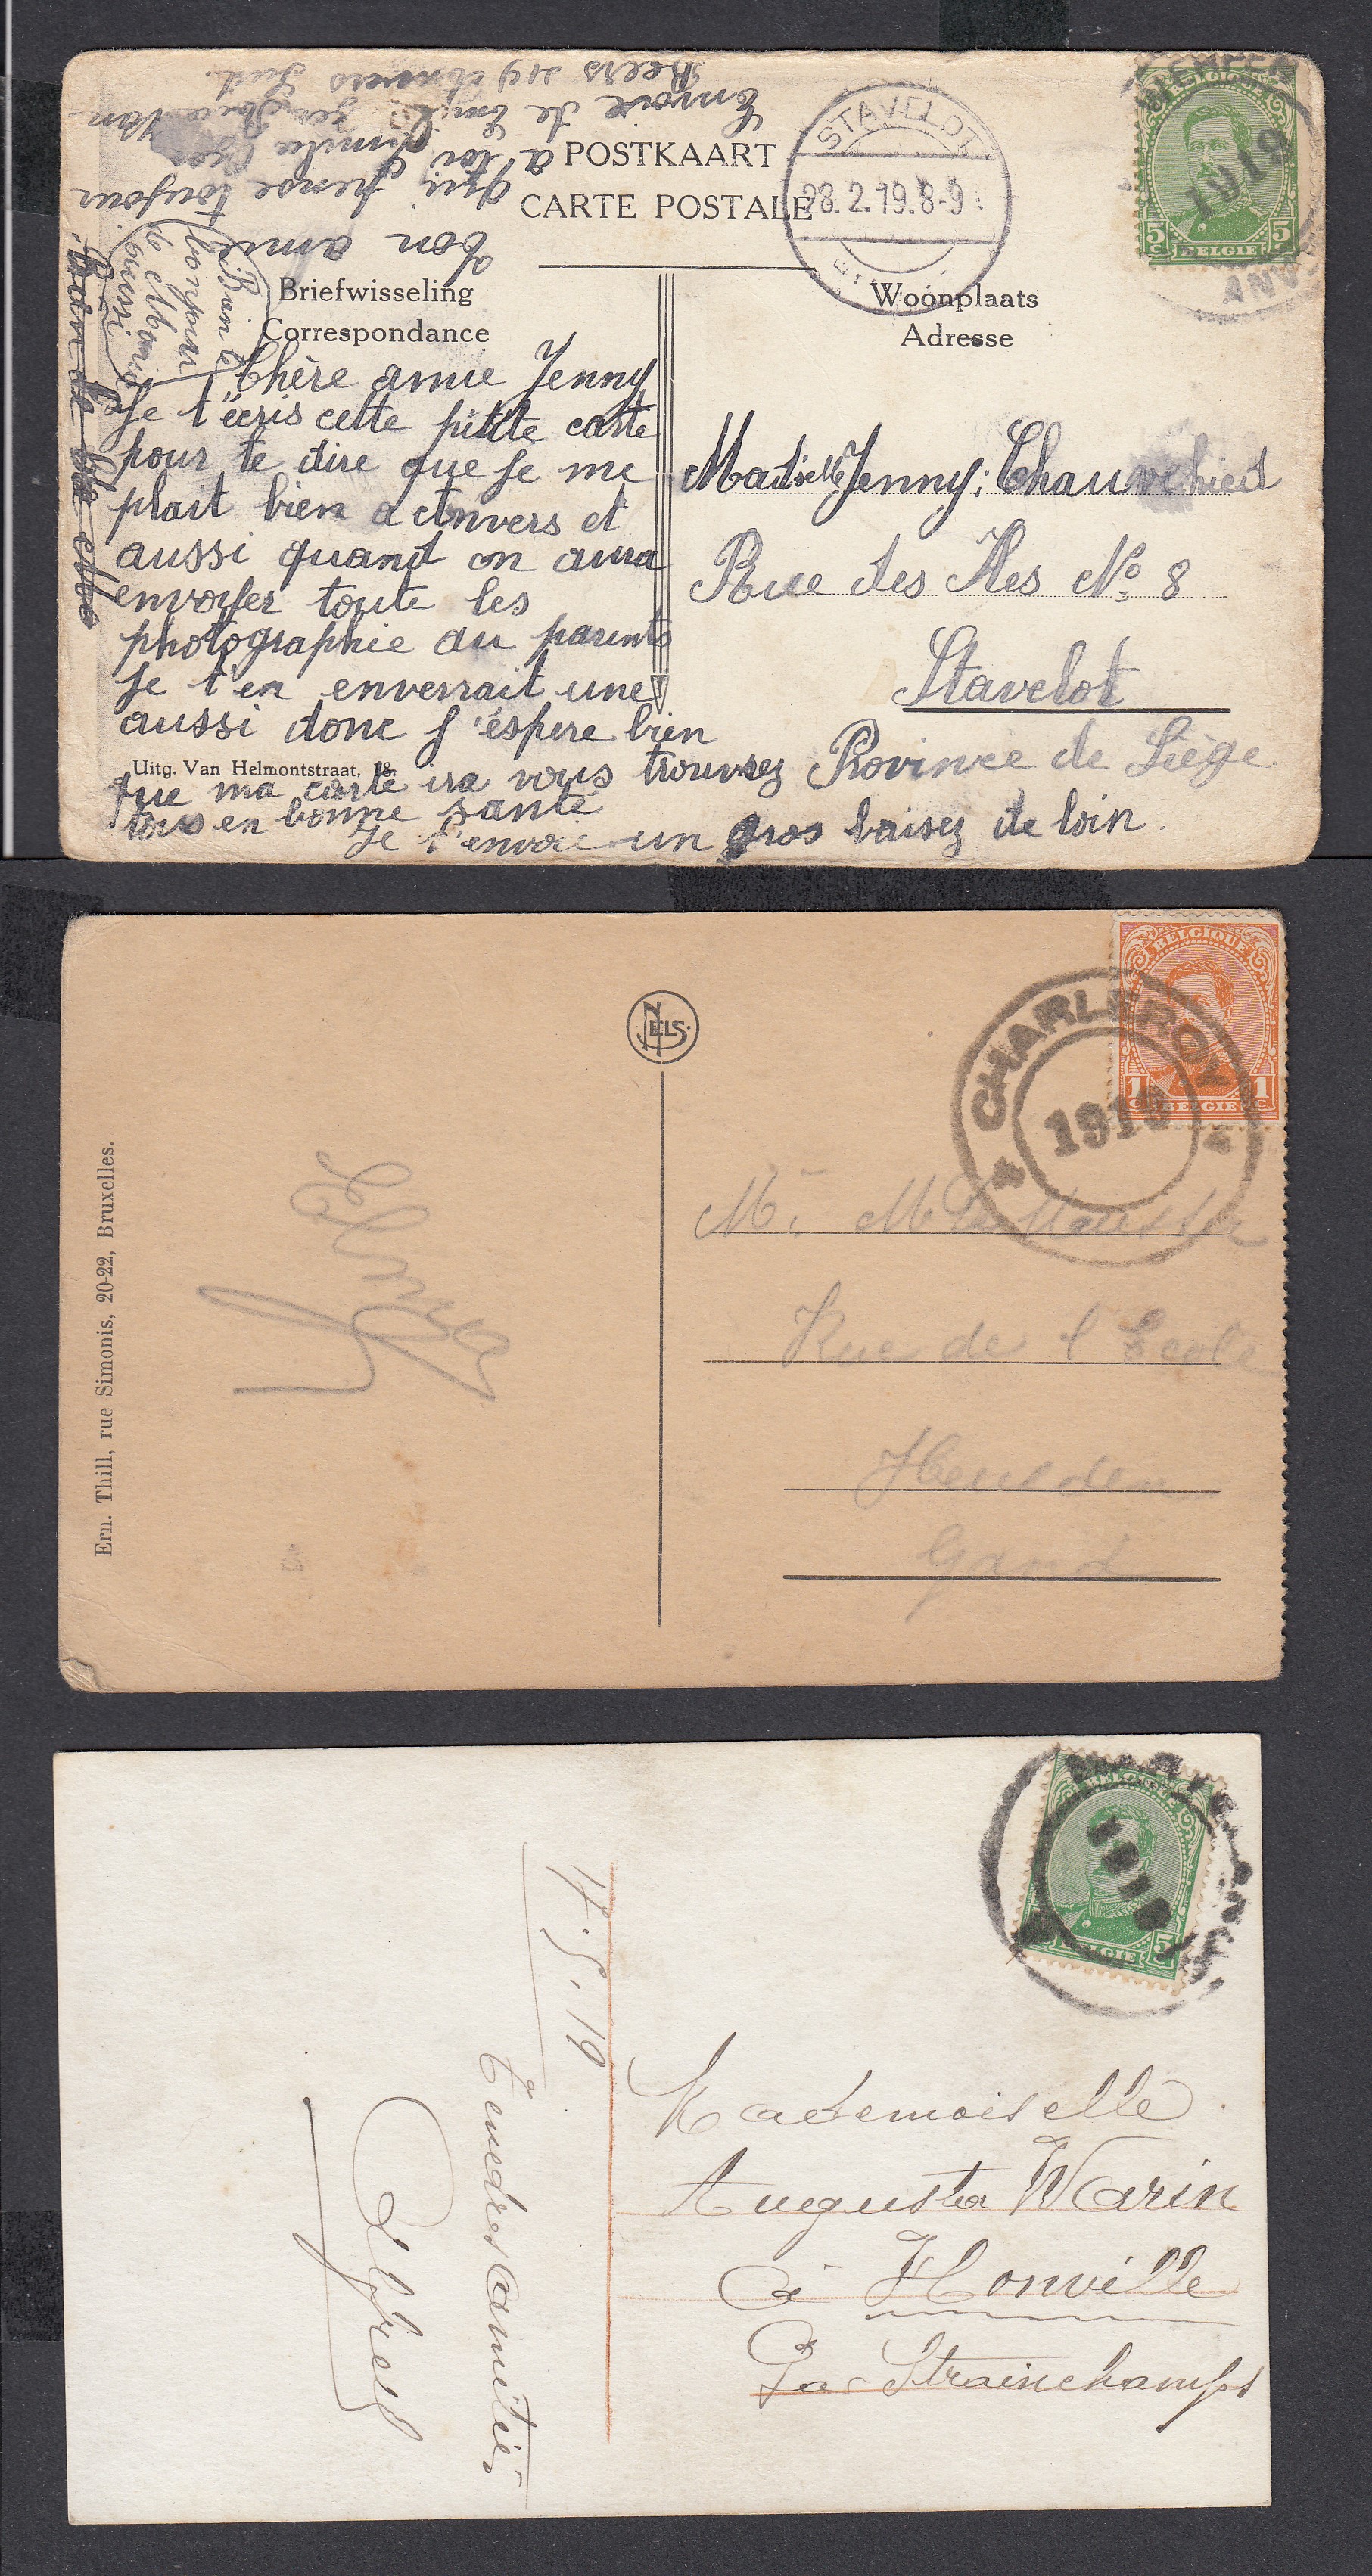 POSTKAART
CARTE POSTALE
STAVELOT
28.2.19.8-9
BELGIQUE
1919
5 5
BELGIE
ANV
Briefwisseling
Correspondance
Woonplaats
Adresse
Chère amie Jenny
Je t'écris cette petite carte
pour te dire que je me
plait bien a Anvers et
aussi quand on aura
envoyer toute les
photographie au parents
je t'en enverrait une
aussi donc j'éspere bien
que ma carte ira vous trouvez
tous en bonne santé
Je t'envoie un gros baisez de loin.
ton amie
qui pense toujour
à toi
Envoie de
Bien le
bonjour
de
aussi
Uitg. Van Helmontstraat, 18.
Jenny
Rue des Iles No. 8
Stavelot
Province de Liège
NELS.
BELGIQUE
1 1
BELGIE
CHARLEROY
1919
4 4
Ern. Thill, rue Simonis, 20-22, Bruxelles.
Rue de l'Ecole
Heusden
Gand
BELGIQUE
1919
BELGIE 5
5.19
Tendres amitiés
Alfred
Mademoiselle
Augusta Warin
à Honville
Par Strainchamps